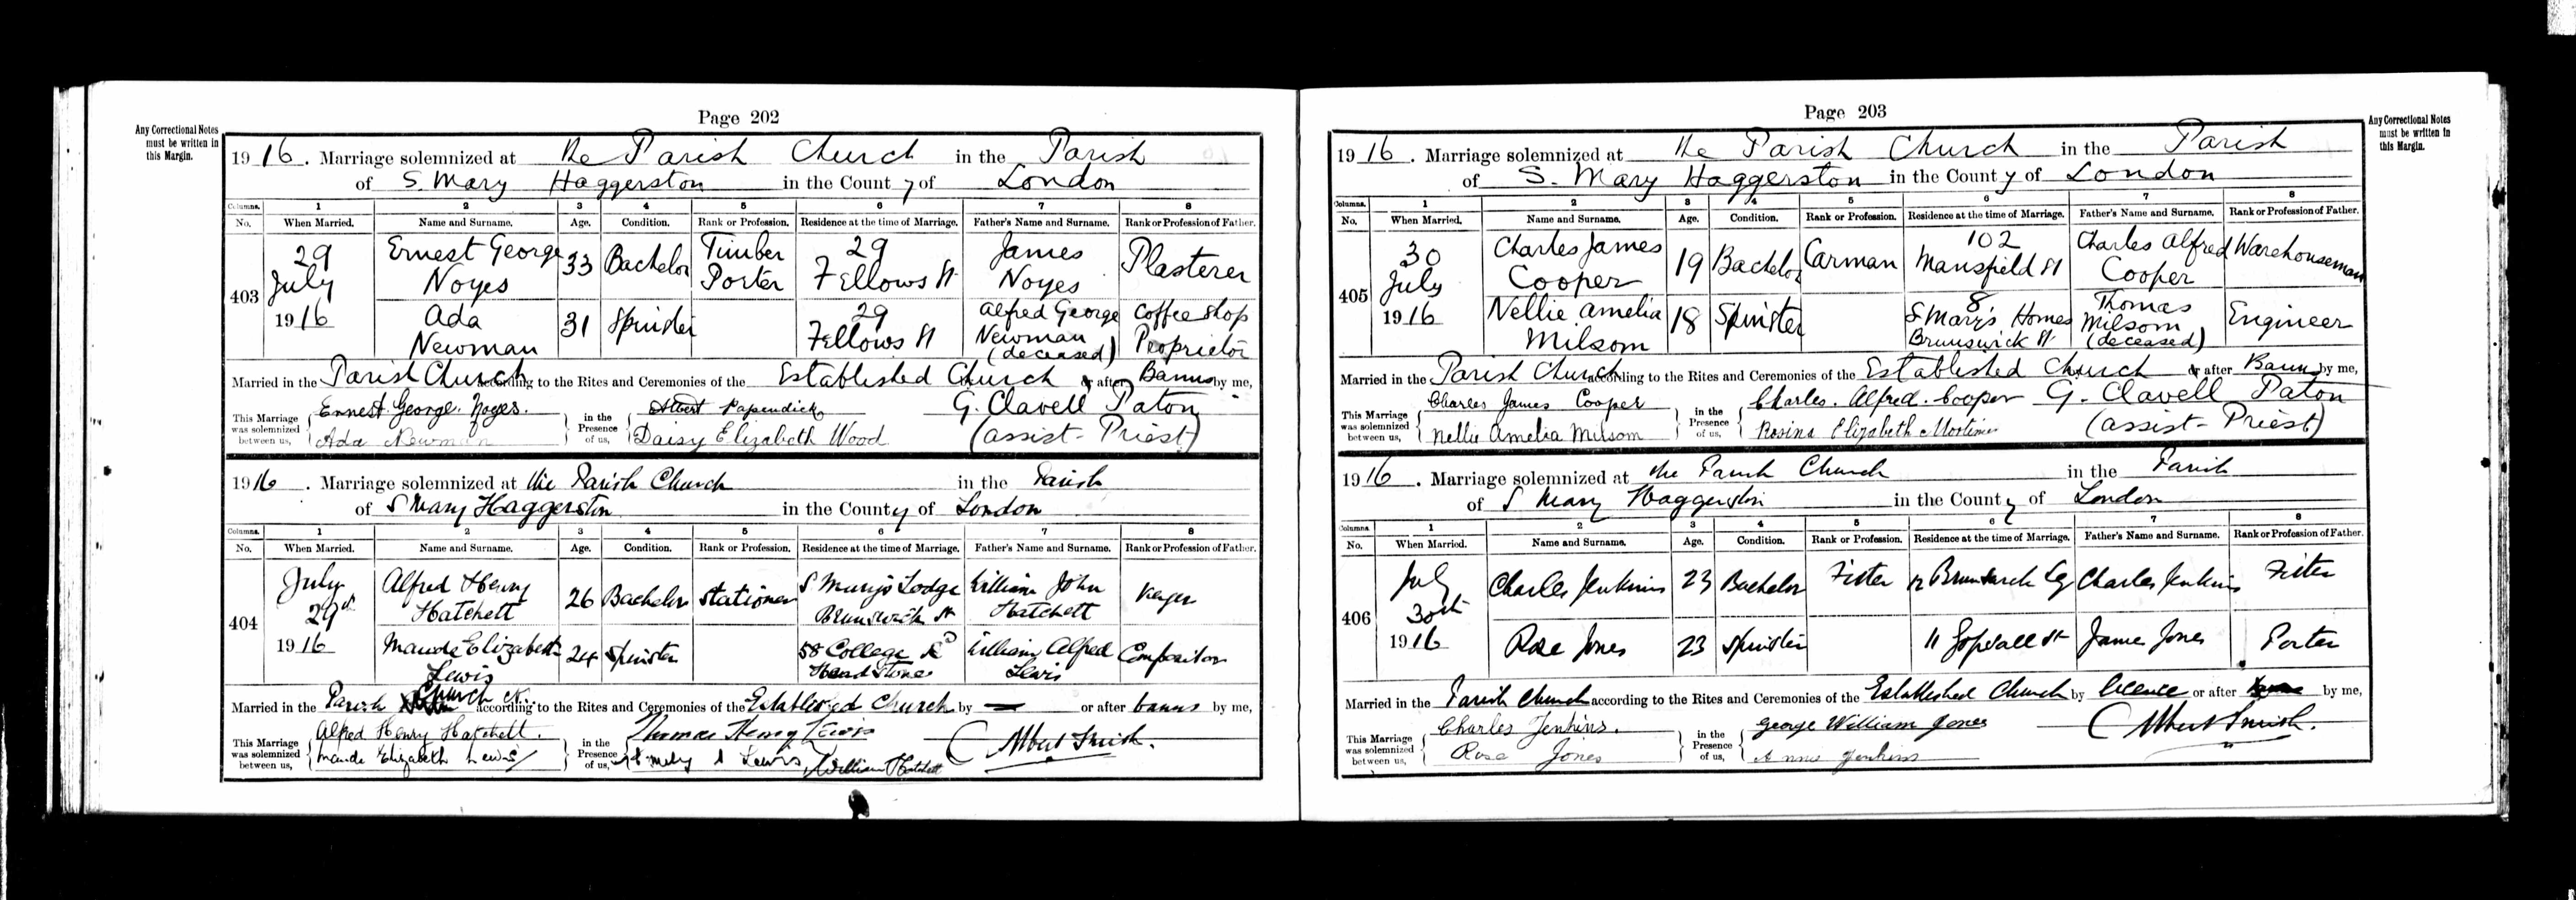 Page 202
Any Correctional Notes
must be written in
this Margin.
1916. Marriage solemnized at the Parish Church in the Parish
of S. Mary Haggerston in the County of London
Columns. 1 2 3 4 5 6 7 8
No. When Married. Name and Surname. Age. Condition. Rank or Profession. Residence at the time of Marriage. Father's Name and Surname. Rank or Profession of Father.
403 29 July 1916 Ernest George Noyes 33 Bachelor Timber Porter 29 Fellows St James Noyes Plasterer
Ada Newman 31 Spinster 29 Fellows St Alfred George Newman (deceased) Coffee shop Proprietor
Married in the Parish Church according to the Rites and Ceremonies of the Established Church or after Banns by me,
This Marriage was solemnized between us, Ernest George Noyes. Ada Newman in the Presence of us, Albert Papendick Daisy Elizabeth Wood G. Clavell Paton (assist-Priest)
1916. Marriage solemnized at the Parish Church in the Parish
of S Mary Haggerston in the County of London
Columns. 1 2 3 4 5 6 7 8
No. When Married. Name and Surname. Age. Condition. Rank or Profession. Residence at the time of Marriage. Father's Name and Surname. Rank or Profession of Father.
404 July 29th 1916 Alfred Henry Hatchett 26 Bachelor Stationer S Mary's Lodge Brunswick St William John Hatchett Verger
Maude Elizabeth Lewis 24 Spinster 58 College Rd William Alfred Lewis Compositor
Married in the Parish Church according to the Rites and Ceremonies of the Established Church by — or after banns by me,
This Marriage was solemnized between us, Alfred Henry Hatchett. Maude Elizabeth Lewis in the Presence of us, Thomas Henry Lewis Lewis William Hatchett Albert Smith.
Page 203
Any Correctional Notes
must be written in
this Margin.
1916. Marriage solemnized at the Parish Church in the Parish
of S. Mary Haggerston in the County of London
Columns. 1 2 3 4 5 6 7 8
No. When Married. Name and Surname. Age. Condition. Rank or Profession. Residence at the time of Marriage. Father's Name and Surname. Rank or Profession of Father.
405 30 July 1916 Charles James Cooper 19 Bachelor Carman 102 Mansfield St Charles Alfred Cooper Warehouseman
Nellie Amelia Milsom 18 Spinster 8 S Mary's Homes Brunswick St Thomas Milsom (deceased) Engineer
Married in the Parish Church according to the Rites and Ceremonies of the Established Church or after Banns by me,
This Marriage was solemnized between us, Charles James Cooper Nellie Amelia Milsom in the Presence of us, Charles. Alfred. Cooper Rosina Elizabeth Mortimer G. Clavell Paton (assist-Priest)
1916. Marriage solemnized at the Parish Church in the Parish
of S Mary Haggerston in the County of London
Columns. 1 2 3 4 5 6 7 8
No. When Married. Name and Surname. Age. Condition. Rank or Profession. Residence at the time of Marriage. Father's Name and Surname. Rank or Profession of Father.
406 July 30th 1916 Charles Jenkins 23 Bachelor Fitter 12 Brunswick Charles Jenkins Fitter
Rose Jones 23 Spinster 11 Gopsall St James Jones Porter
Married in the Parish Church according to the Rites and Ceremonies of the Established Church by licence or after by me,
This Marriage was solemnized between us, Charles Jenkins. Rose Jones in the Presence of us, George William Jones Annie Jenkins Albert Smith.